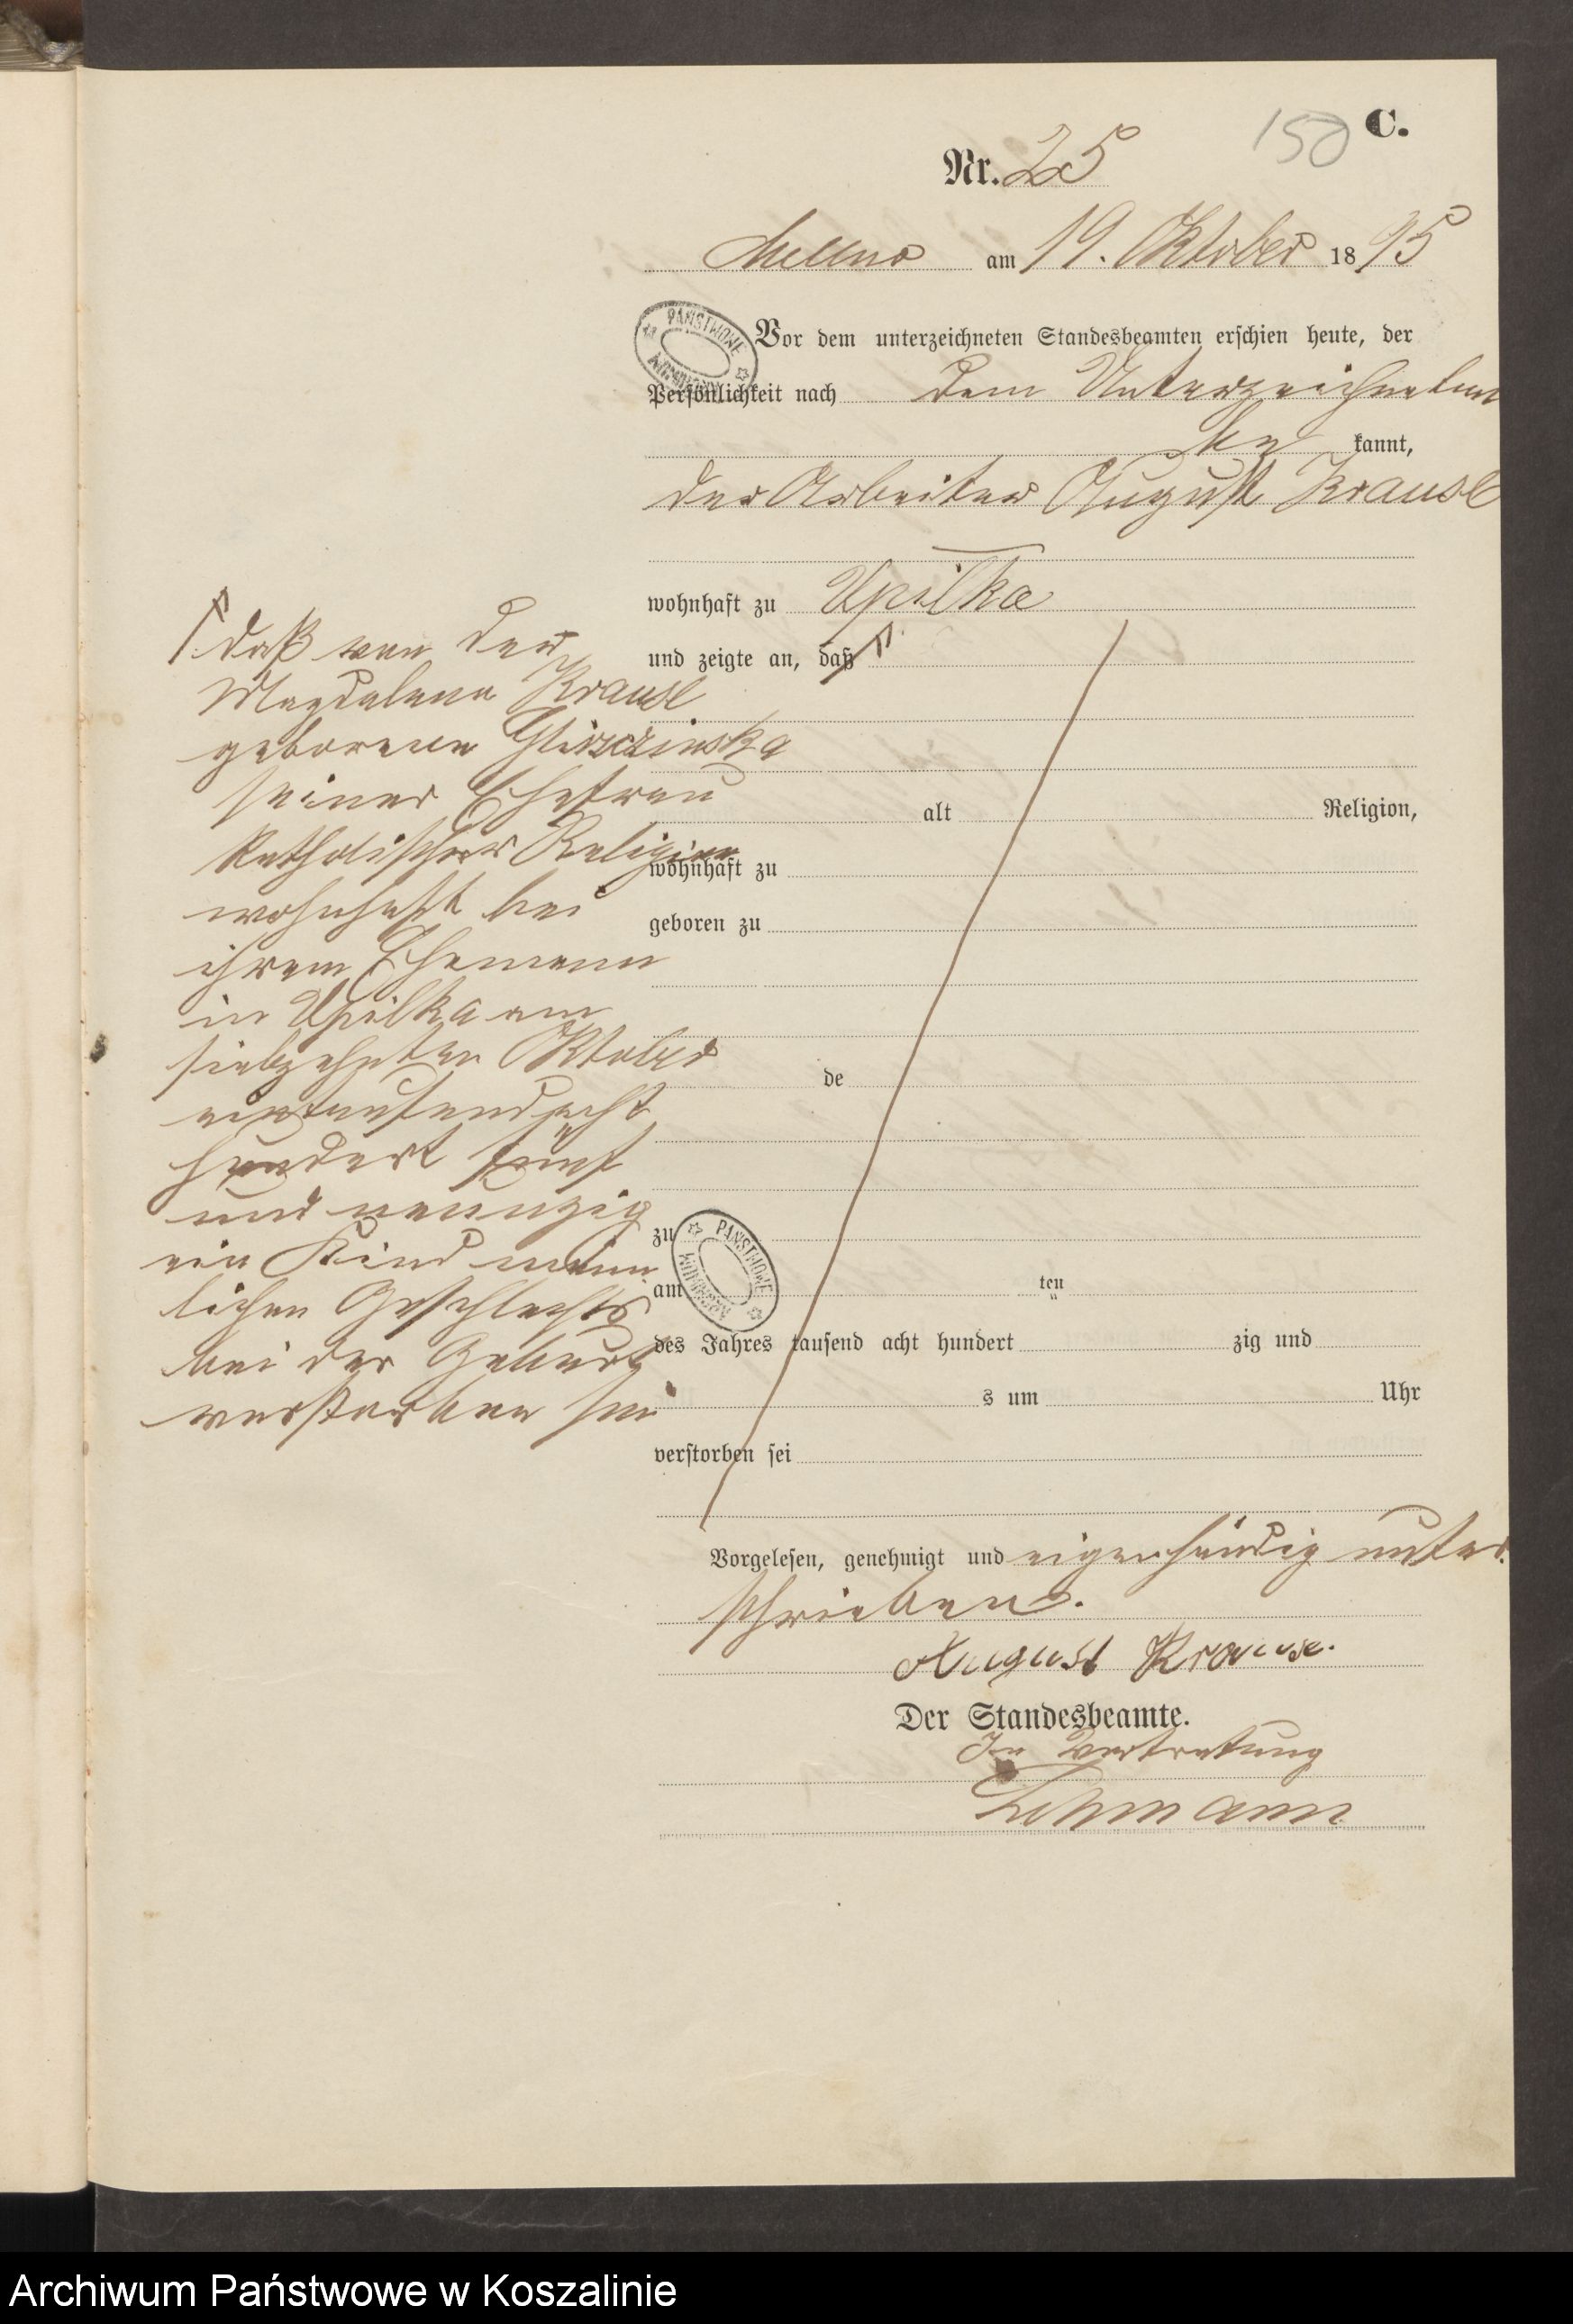 150 C.
Nr. 25
Mellno am 19. Oktober 1895
Vor dem unterzeichneten Standesbeamten erschien heute, der
Persönlichkeit nach dem Unterzeichneten
be kannt,
der Arbeiter August Krause
wohnhaft zu Upilka
und zeigte an, daß
alt Religion,
wohnhaft zu
geboren zu
de
zu
am ten
des Jahres tausend acht hundert zig und
s um Uhr
verstorben sei
daß von der
Magdalena Krause
geborene
seiner Ehefrau
katholischer Religion
wohnhaft bei
ihrem Ehemann
in Upilka am
siebzehnten Oktober
eintausend acht
hundert fünf
und neunzig
ein Kind männ
lichen Geschlechts
bei der Geburt
verstorben sei
Vorgelesen, genehmigt und eigenhändig unter
schrieben.
August Krause.
Der Standesbeamte.
In Vertretung
Lehmann
PAŃSTWOWE ARCHIWUM
PAŃSTWOWE ARCHIWUM
Archiwum Państwowe w Koszalinie